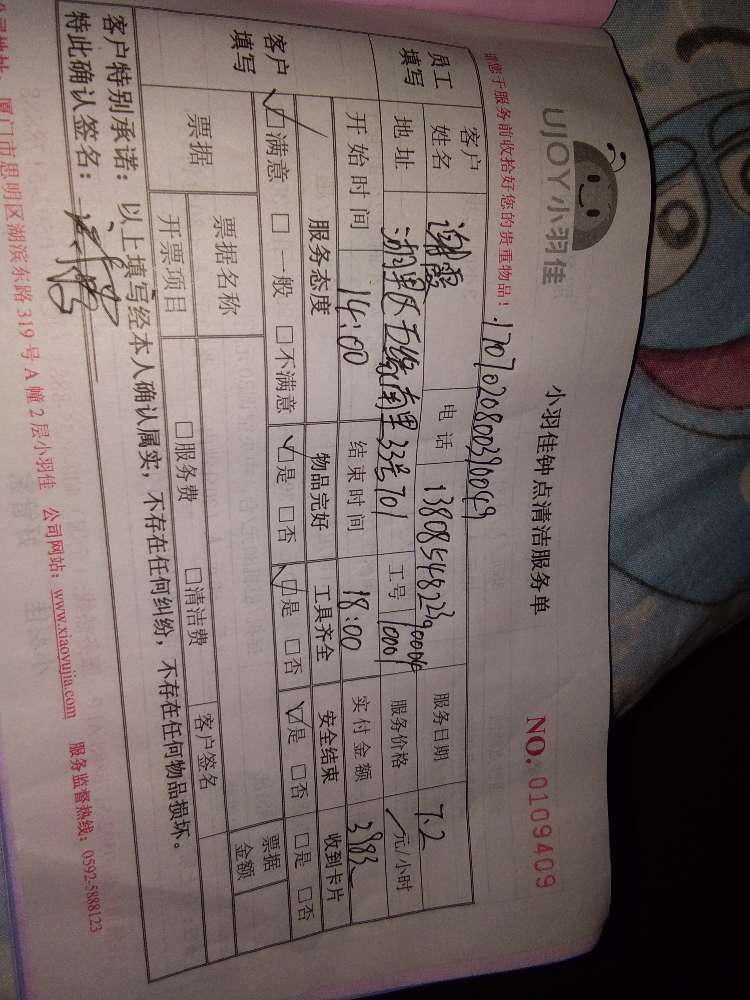 UJOY小羽佳
小羽佳钟点清洁服务单
NO. 0109409
请您于服务前收拾好您的贵重物品！
1707020800390049
员工填写
客户姓名 谢露 电话 13808548223 服务日期 7.2
地址 湖里区 南里33号701 工号 10001 服务价格 元/小时
开始时间 14:00 结束时间 18:00 实付金额
客户填写
服务态度 物品完好 工具齐全 安全结束 收到卡片
☑满意 □一般 □不满意 ☑是 □否 ☑是 □否 ☑是 □否 □是 □否
票据 票据名称 客户签名 票据金额
开票项目 □服务费 □清洁费
客户特别承诺：以上填写经本人确认属实，不存在任何纠纷，不存在任何物品损坏。
特此确认签名：
公司地址：厦门市思明区湖滨东路319号A幢2层小羽佳 公司网站：www.xiaoyujia.com 服务监督热线：0592-5888123